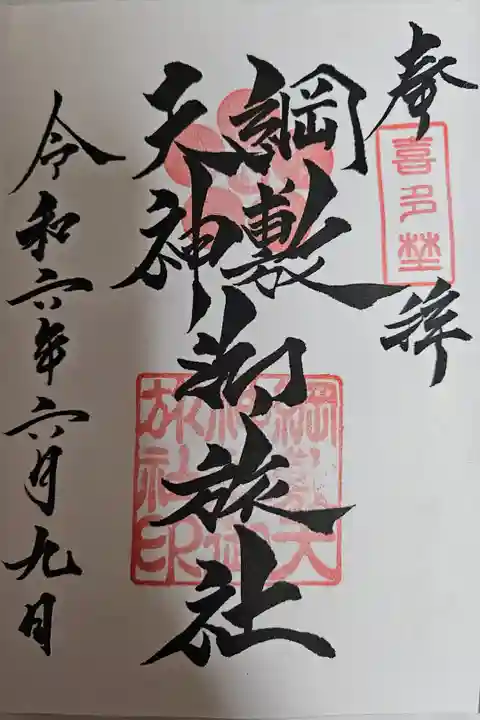 奉拝
喜多埜
綱敷
天神
御旅社
綱敷天神御旅社印
令和六年六月九日